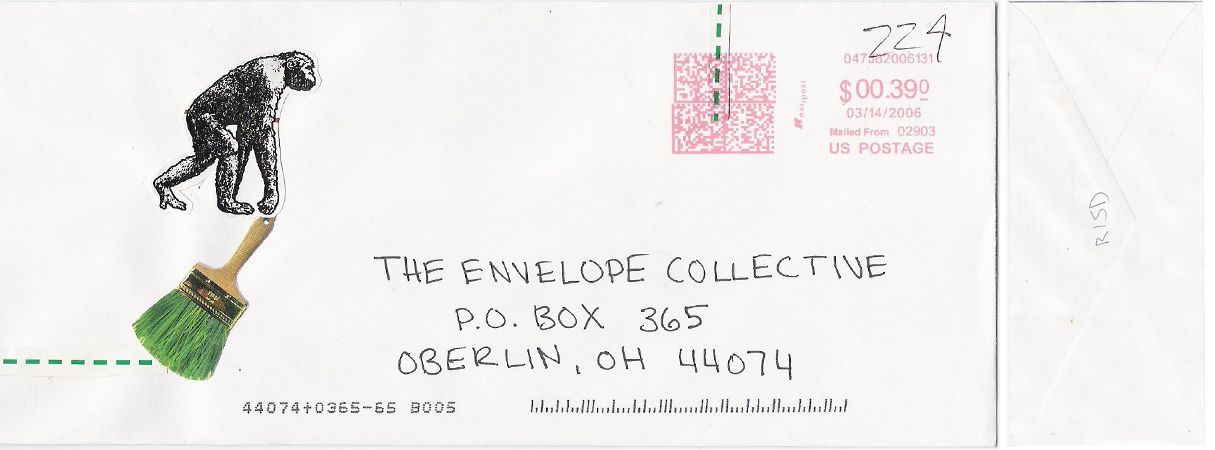 224
047J82006131
$00.390
03/14/2006
Mailed From 02903
US POSTAGE
THE ENVELOPE COLLECTIVE
P.O. BOX 365
OBERLIN, OH 44074
44074+0365-65 B005
RISD